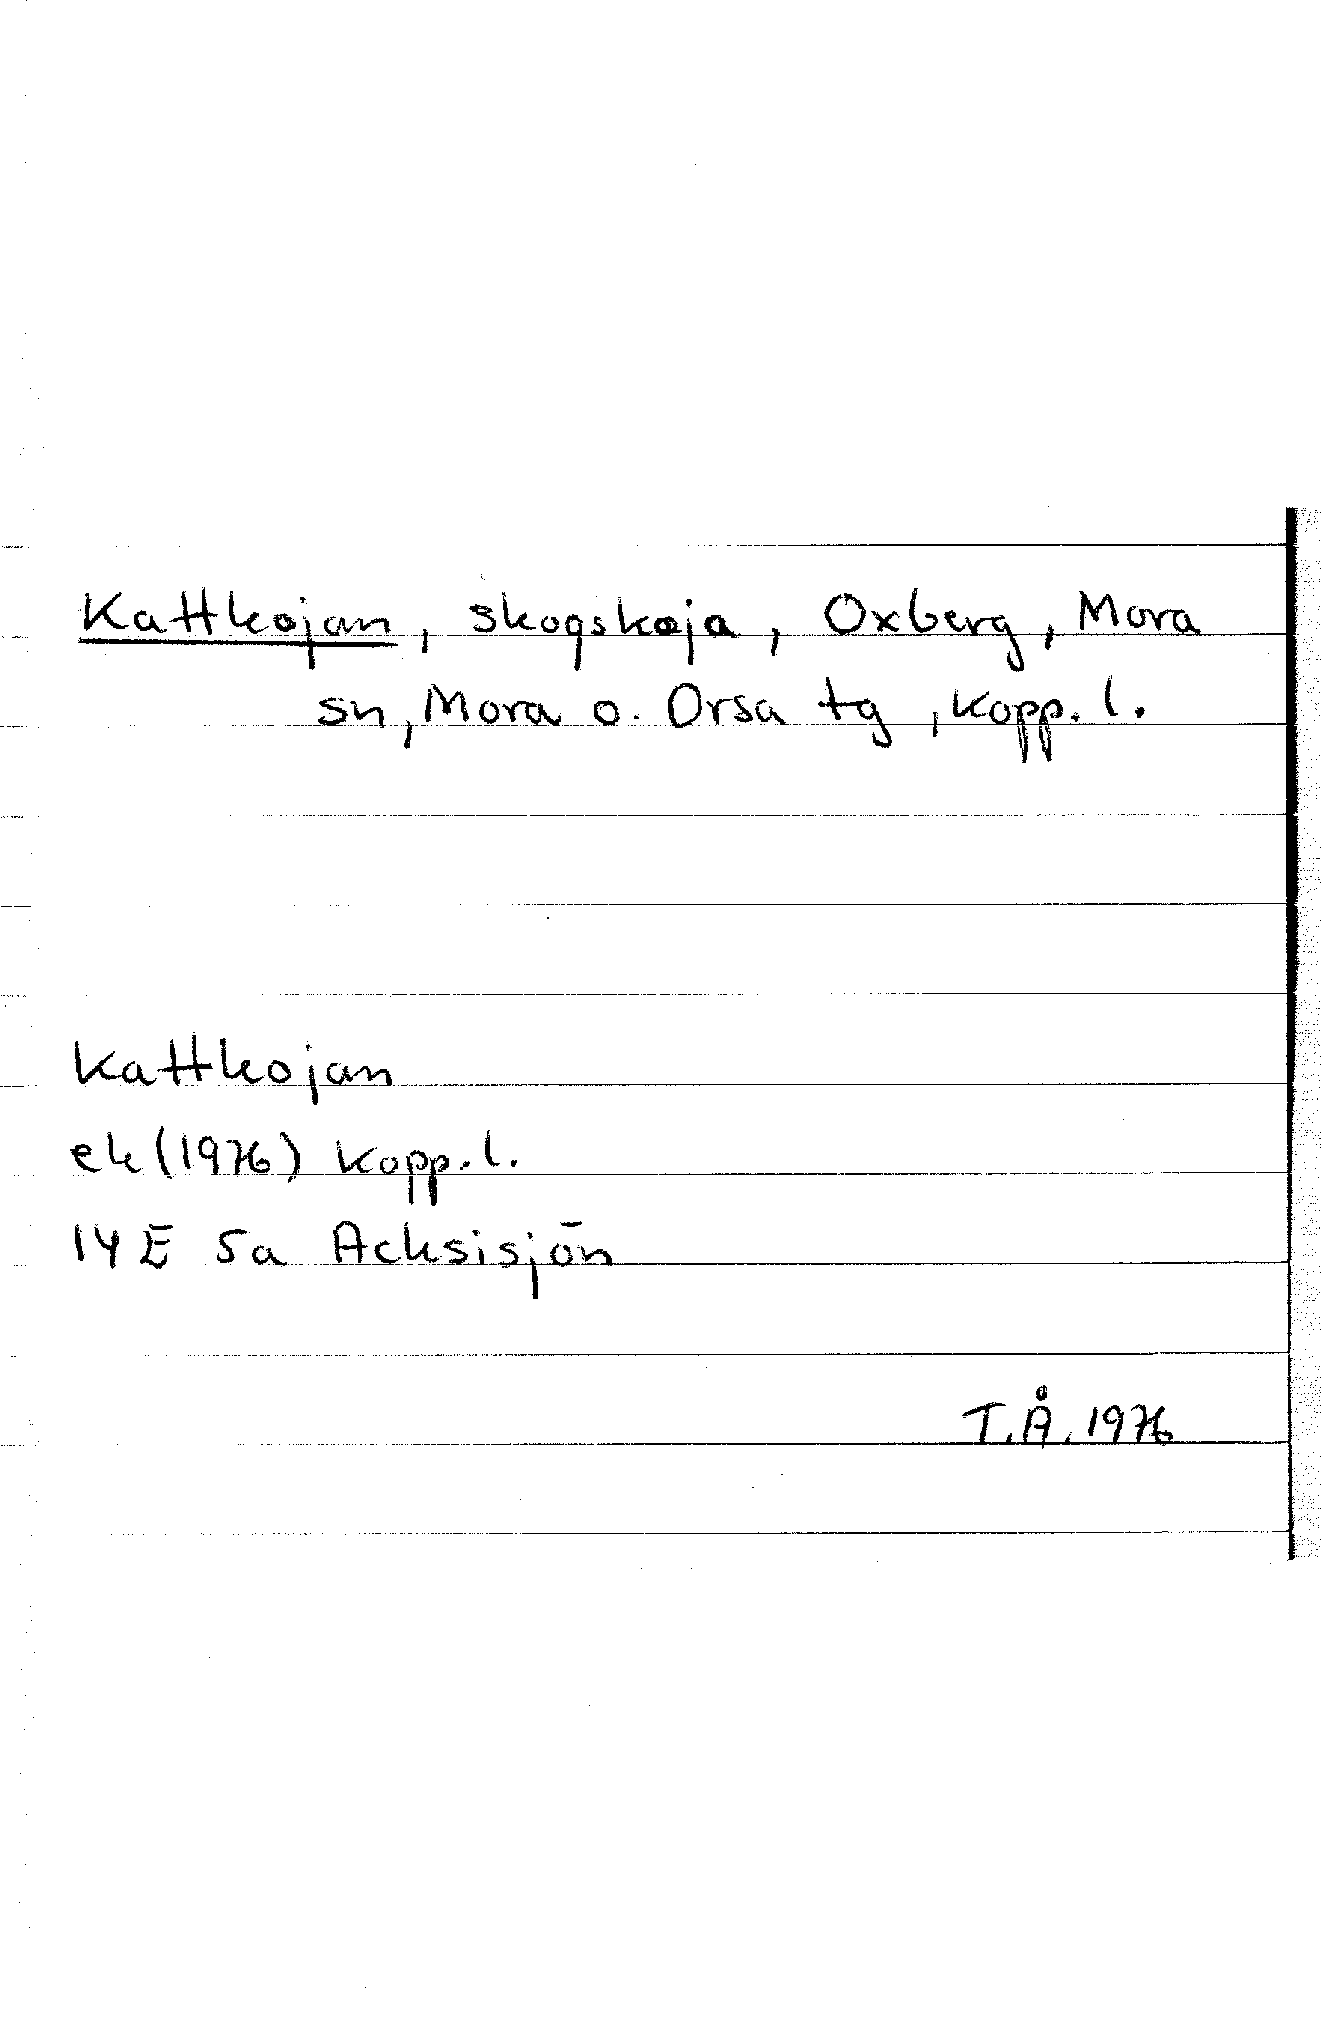 Kattkojan, skogskoja, Oxberg, Mora
sn, Mora o. Orsa tg, Kopp. l.
Kattkojan
ek (1976) Kopp. l.
14 E 5a Acksisjön
T.Å. 1976